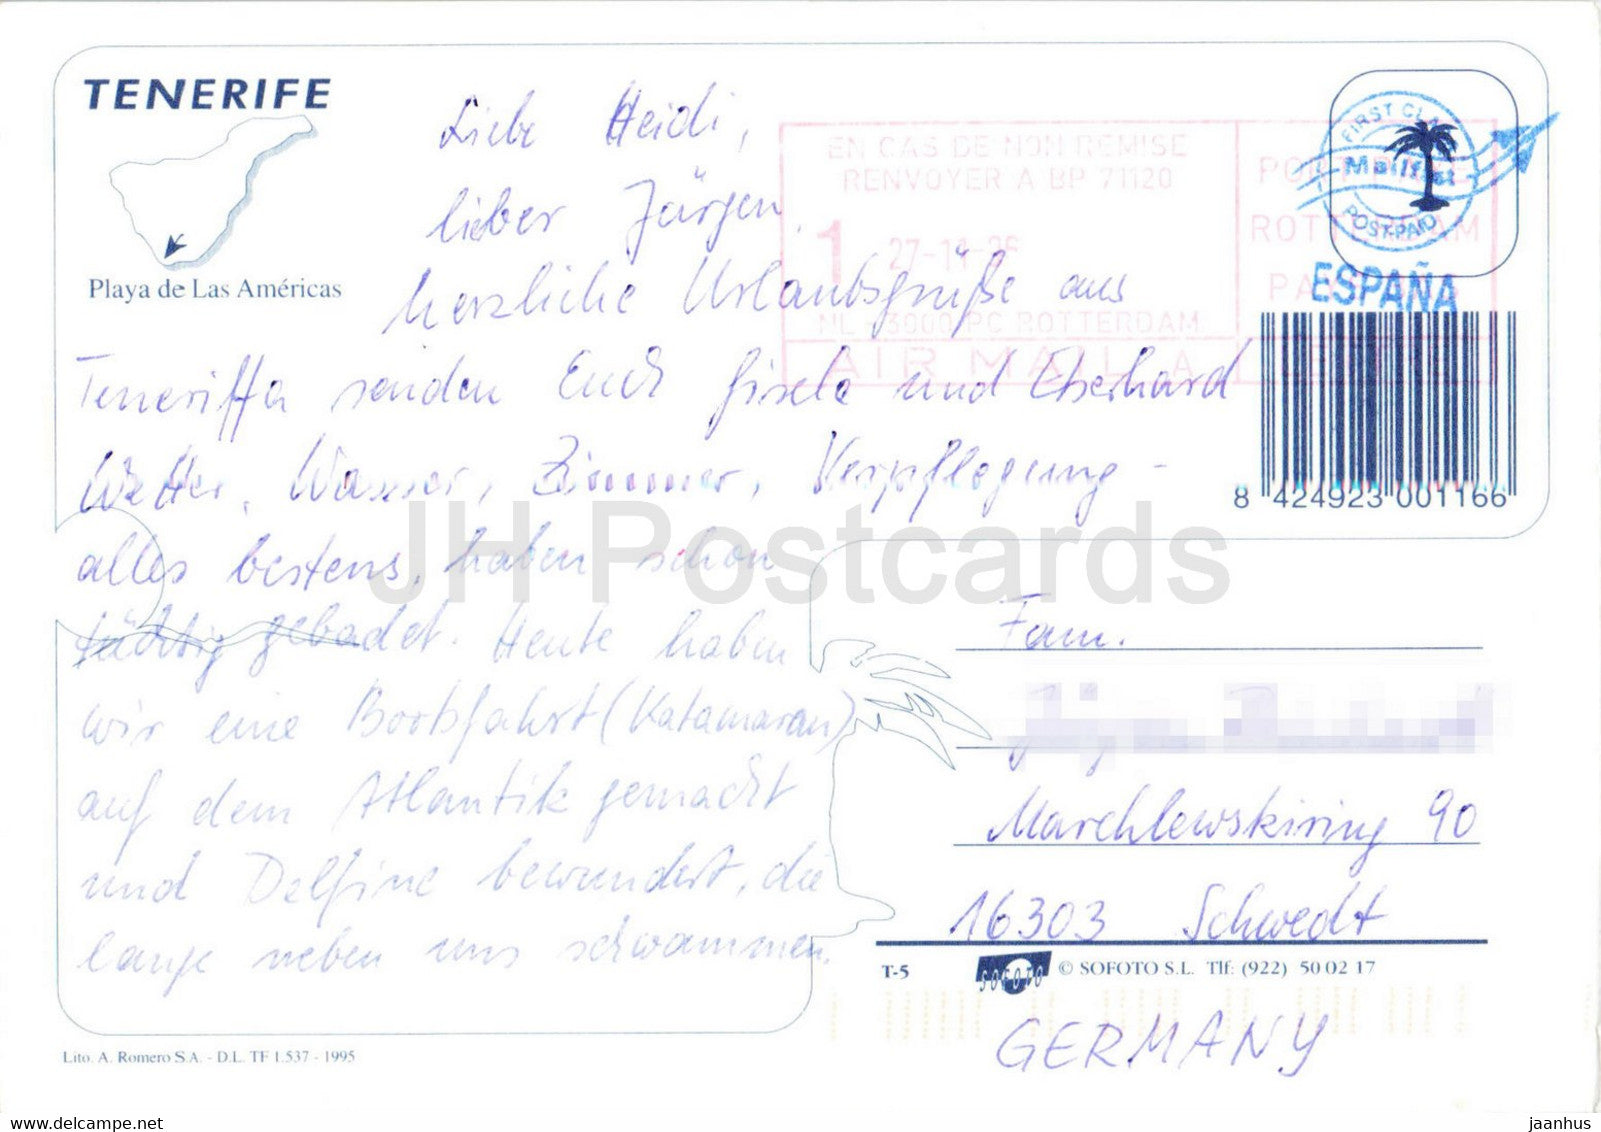 TENERIFE
Playa de Las Américas
Liebe Heidi,
lieber Jürgen,
herzliche Urlaubsgrüße aus
Teneriffa senden Euch Gisela und Eberhard
Wetter, Wasser, Zimmer, Verpflegung -
alles bestens, haben schon
tüchtig gebadet. Heute haben
wir eine Bootsfahrt (Katamaran)
auf dem Atlantik gemacht
und Delfine bewundert, die
lange neben uns schwammen.
Lito. A. Romero S.A. - D.L. TF 1.537 - 1995
EN CAS DE NON REMISE
RENVOYER A BP 71120
1
NL - 3000 PC ROTTERDAM
AIR MAIL A
PORT PAYE
ROTTERDAM
FIRST CLASS
Mailfast
POST-PAID
ESPAÑA
8 424923 001166
JH Postcards
Fam.
Marchlewskiring 90
16303 Schwedt
T-5 SOFOTO © SOFOTO S.L. Tlf: (922) 50 02 17
GERMANY
jhpostcard.delcampe.net
jaanhus